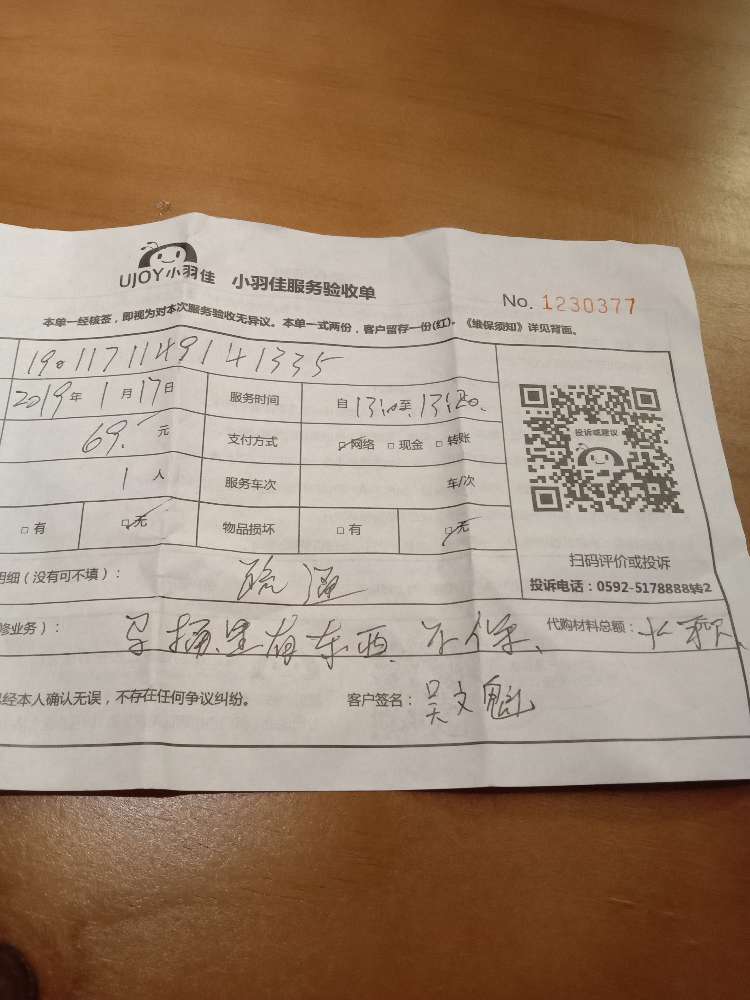 UJOY小羽佳 小羽佳服务验收单
No. 1230377
本单一经核签，即视为对本次服务验收无异议。本单一式两份，客户留存一份(红)。《维保须知》详见背面。
190117114914 1335
2019年 1月 17日 服务时间 自 13:10至 13:20.
69. 元 支付方式 □网络 □现金 □转账
投诉或建议
1 人 服务车次 车/次
□有 □无 物品损坏 □有 □无
扫码评价或投诉
明细（没有可不填）： 疏通
投诉电话：0592-5178888转2
修业务）： 马桶里有东西、不保、 代购材料总额：
经本人确认无误，不存在任何争议纠纷。 客户签名：吴文魁